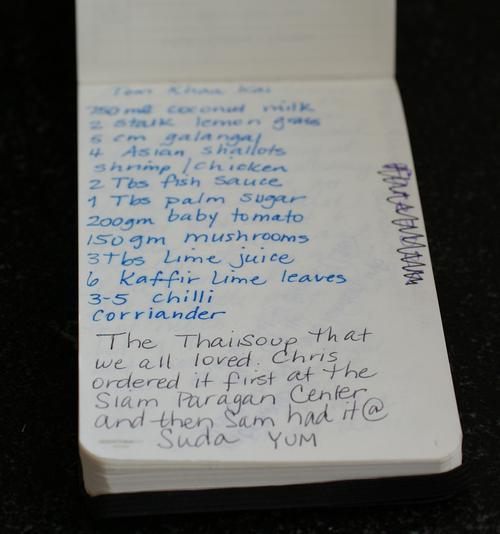 Tom Khaa Kai
750ml coconut milk
2 stalk lemon grass
5 cm galangal
4 Asian shallots
shrimp/chicken
2 Tbs fish sauce
1 Tbs palm sugar
200gm baby tomato
150gm mushrooms
3Tbs Lime juice
6 Kaffir Lime leaves
3-5 chilli
corriander
The Thai Soup that
we all loved. Chris
ordered it first at the
Siam Paragan Center
and then Sam had it @
Suda YUM